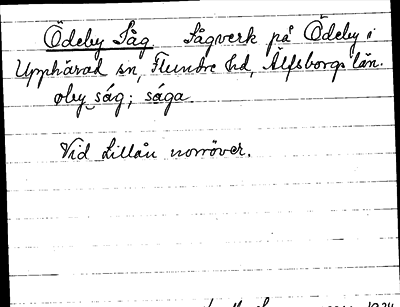 Ödeby Såg Sågverk på Ödeby i
Upphärad sn, Flundre hd, Älfsborgs län.
øby såg; såga.
Vid Lillån norröver.
1924